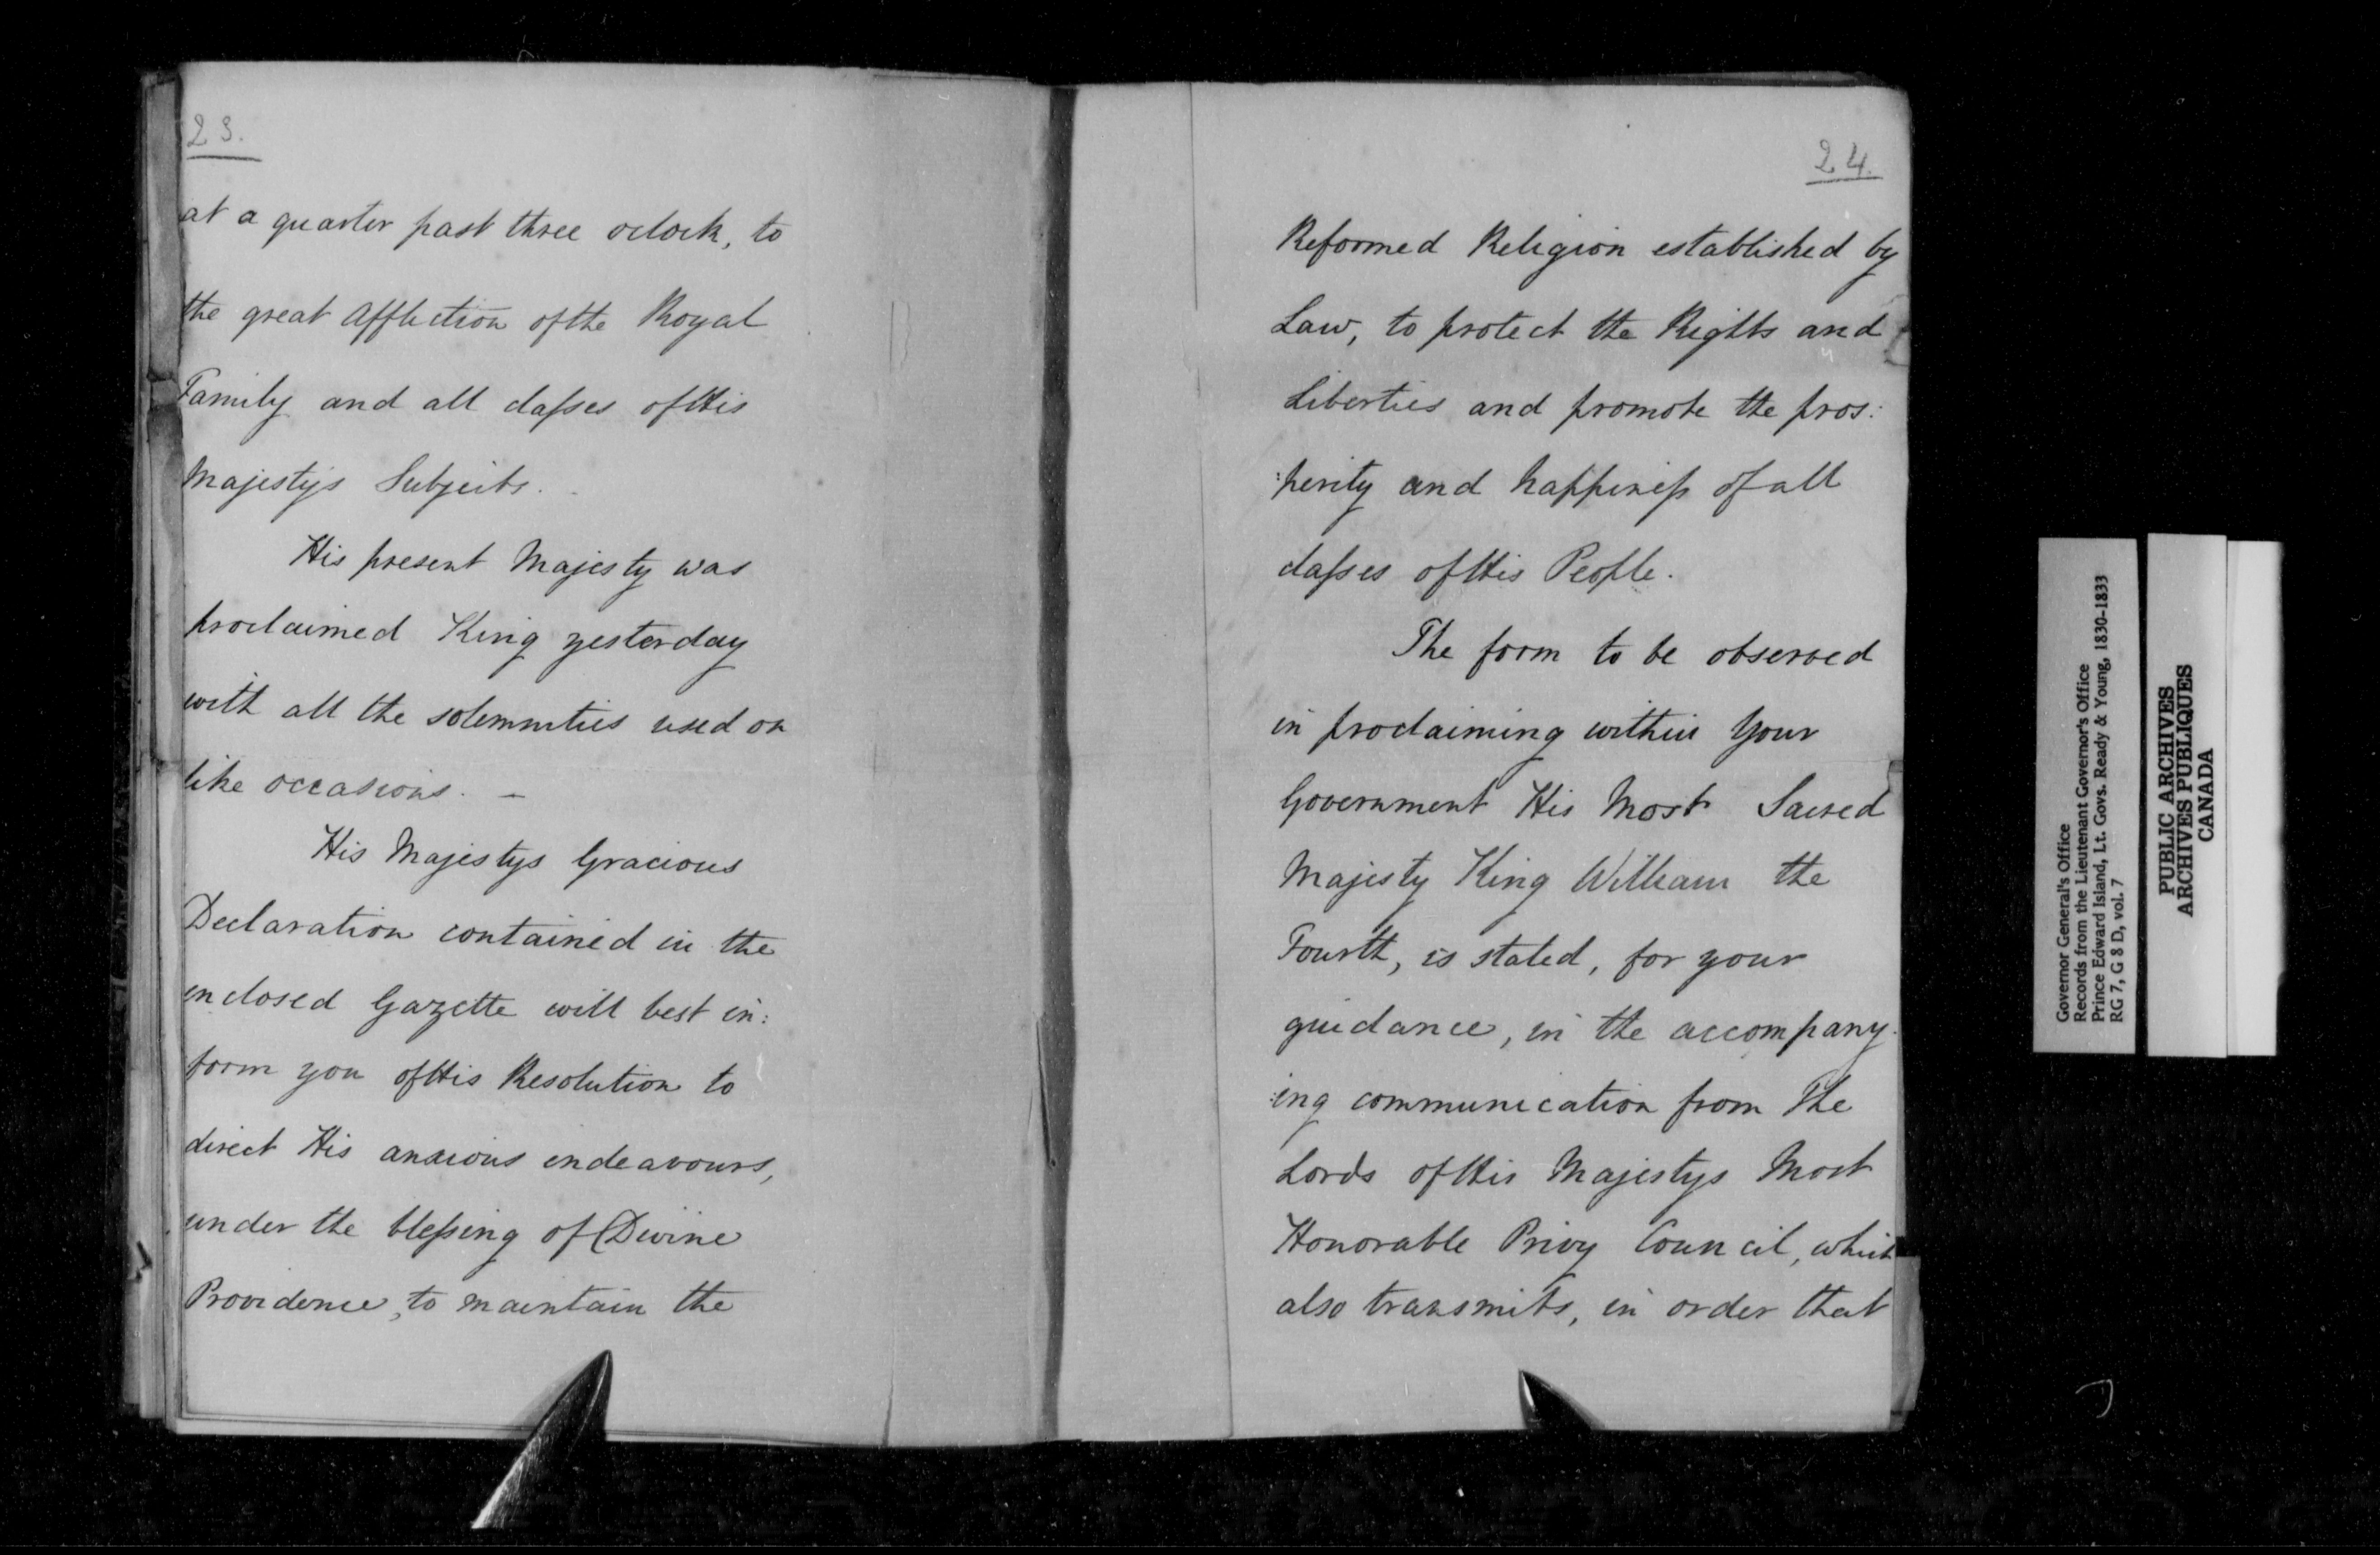 23.
at a quarter past three oclock, to
the great affliction of the Royal
Family and all classes of His
Majestys Subjects.
His present Majesty was
proclaimed King yesterday
with all the solemnities used on
like occasions. —
His Majestys Gracious
Declaration contained in the
enclosed Gazette will best in:
form you of His Resolution to
direct His anxious endeavours,
under the blessing of Divine
Providence, to maintain the
24.
Reformed Religion established by
Law, to protect the Rights and
Liberties and promote the pros:
:perity and happiness of all
classes of His People.
The form to be observed
in proclaiming within Your
Government His Most Sacred
Majesty King William the
Fourth, is stated, for your
guidance, in the accompany-
:ing communication from The
Lords of His Majestys Most
Honorable Privy Council, which
also transmits, in order that
Governor General's Office
Records from the Lieutenant Governor's Office
Prince Edward Island, Lt. Govs. Ready & Young, 1830-1833
RG 7, G 8 D, vol. 7
PUBLIC ARCHIVES
ARCHIVES PUBLIQUES
CANADA